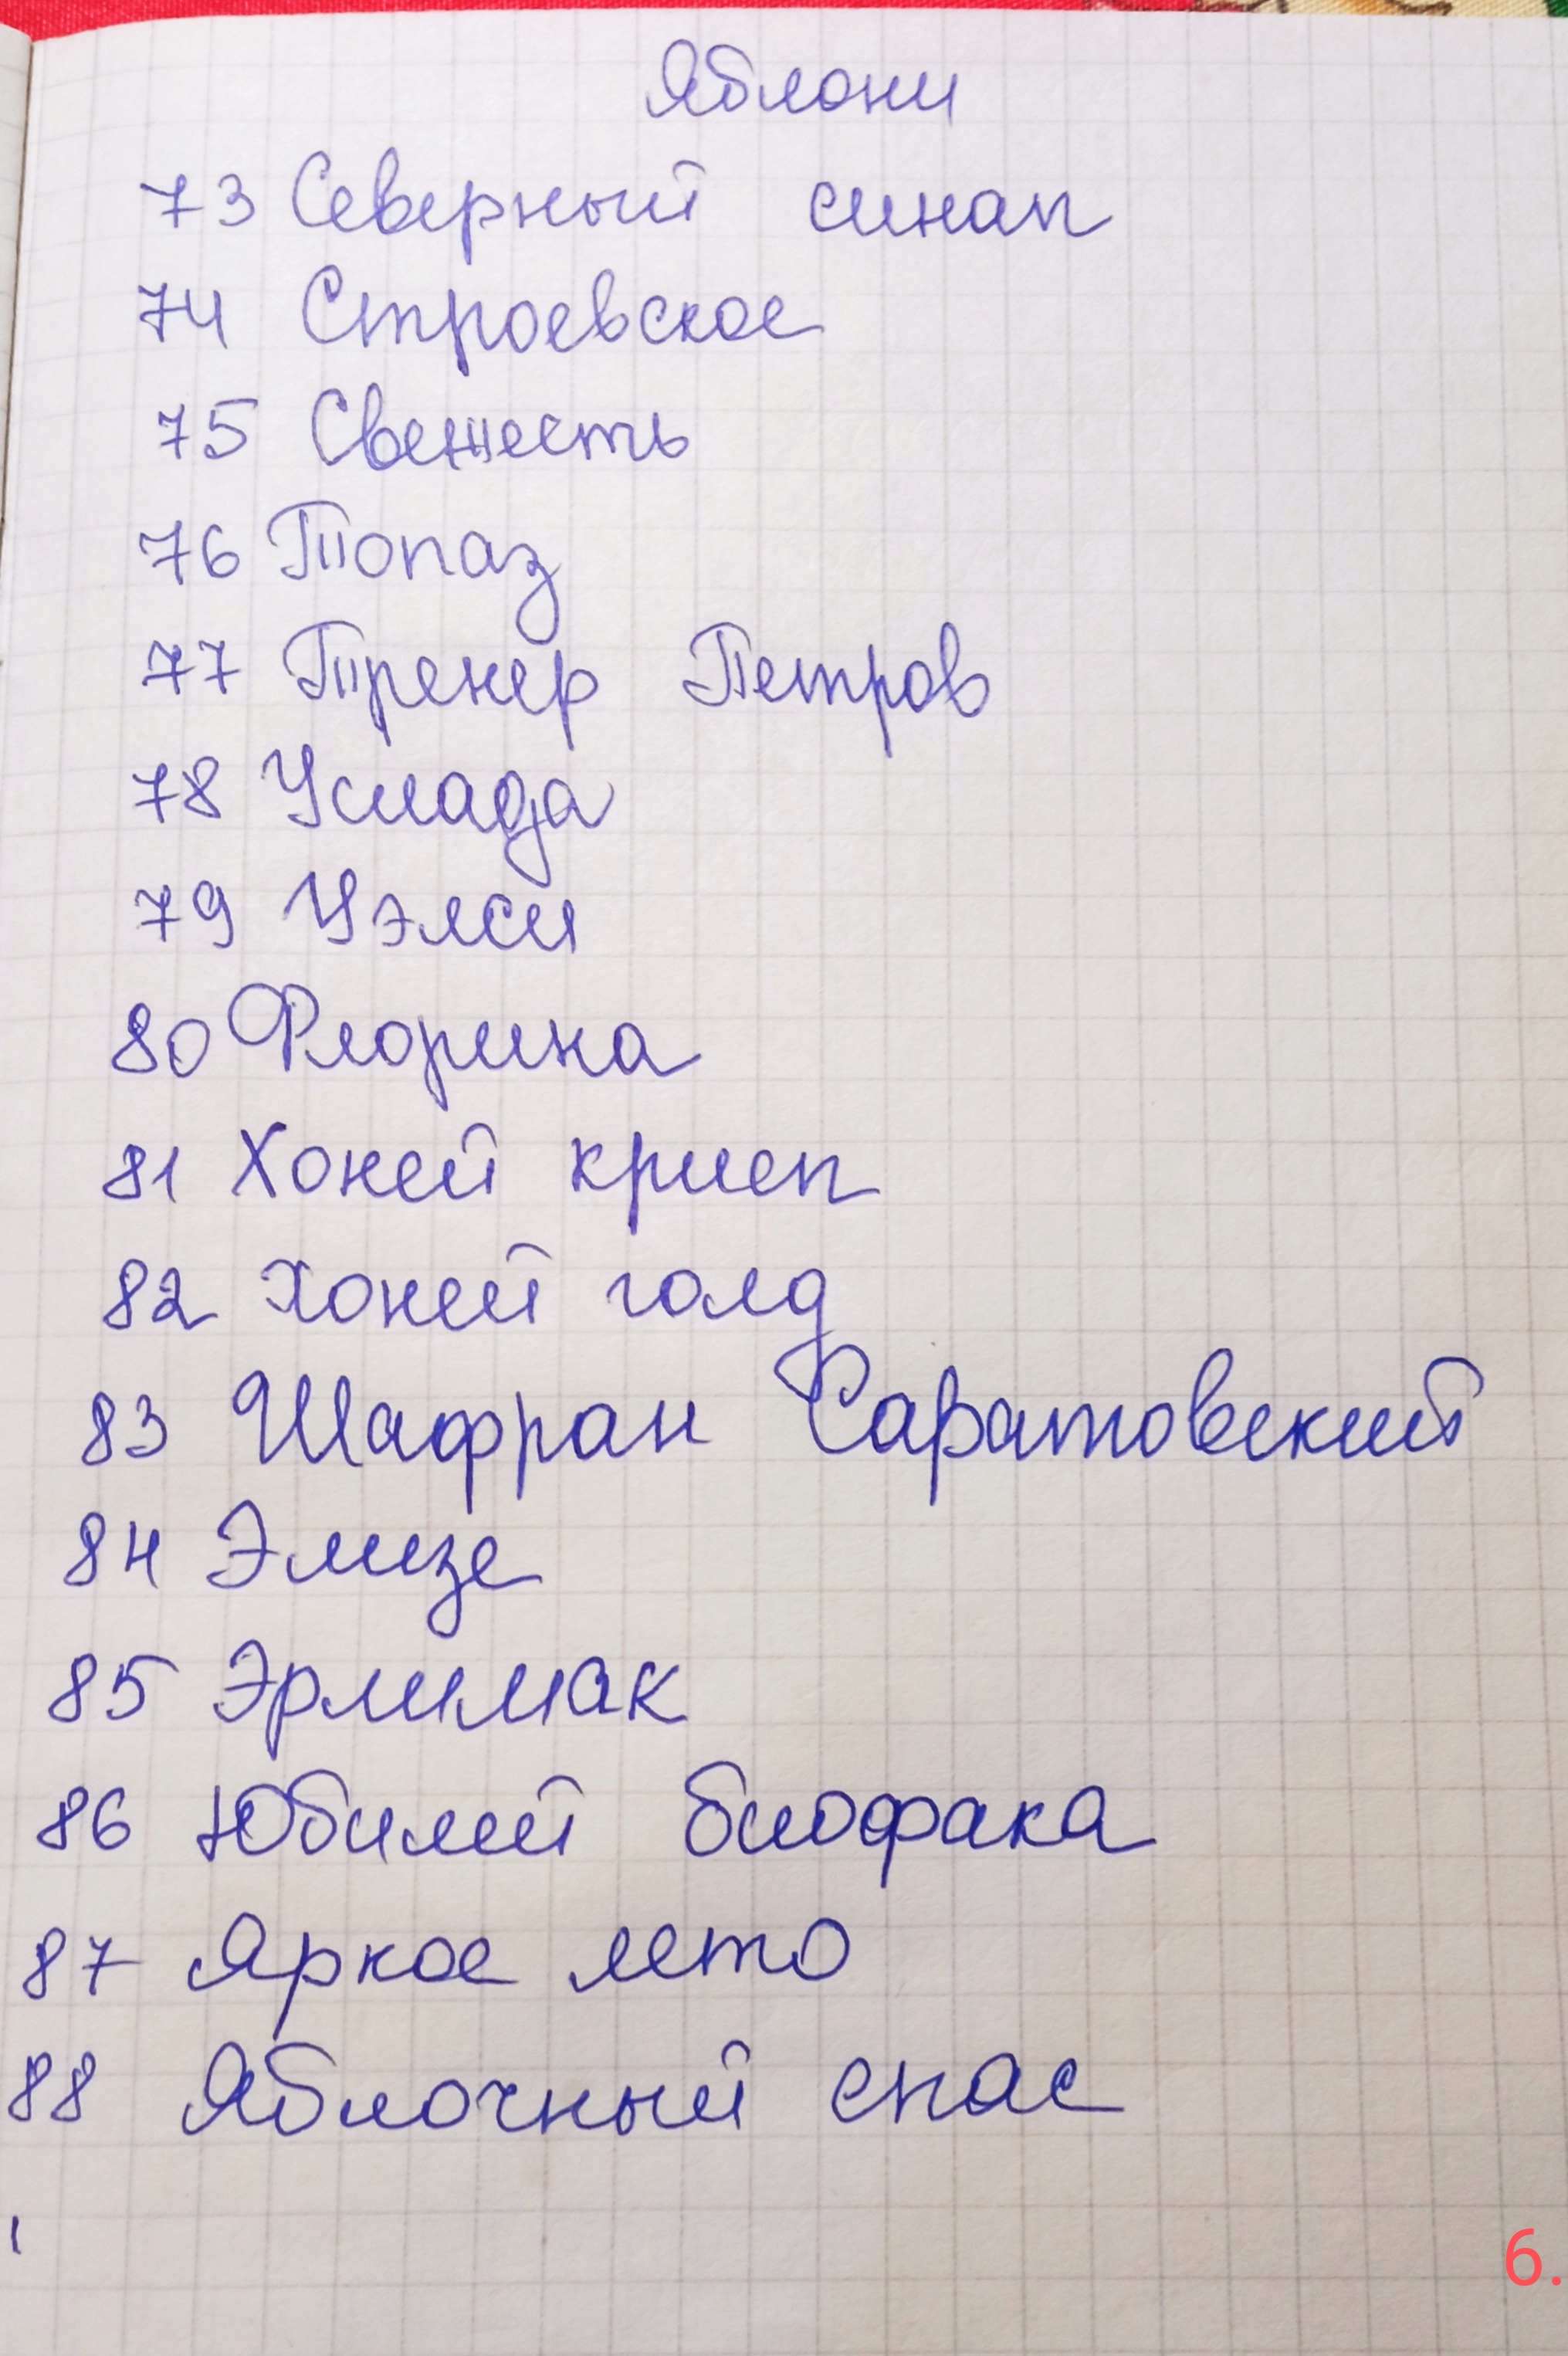 Яблони
73 Северный синап
74 Строевское
75 Свежесть
76 Топаз
77 Тренер Петров
78 Услада
79 Уэлси
80 Флорина
81 Хоней крисп
82 Хоней голд
83 Шафран Саратовский
84 Элизе
85 Эрлимак
86 Юбилей биофака
87 Яркое лето
88 Яблочный спас
6.